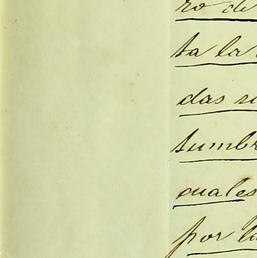 ro de
ta la
das
tumbr
cuales
por la